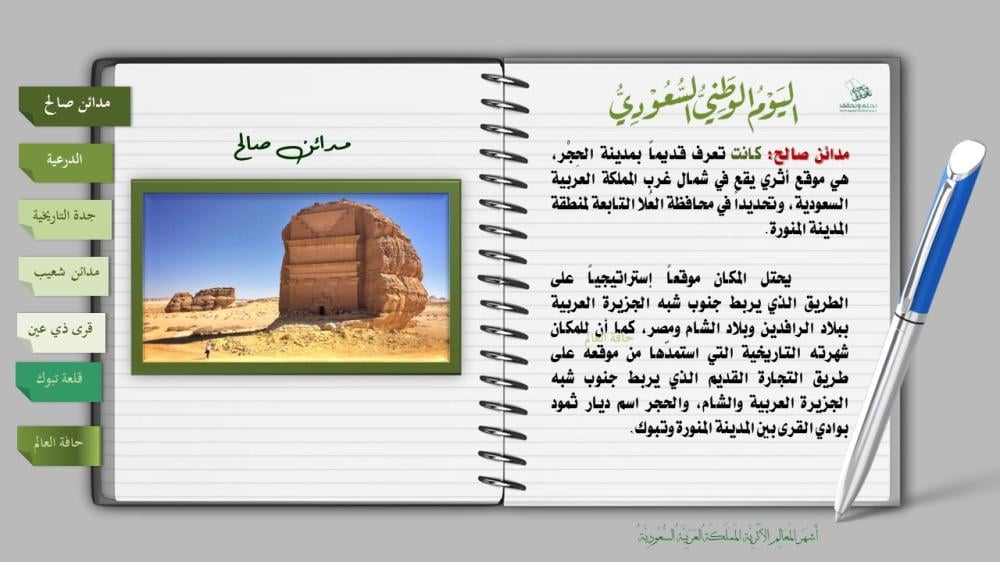 اليَوْمُ الوَطَنِيُّ السُّعُوْدِيُّ
نحلم ونحقق
مدائن صالح: كانت تعرف قديماً بمدينة الحِجْر،
هي موقع أثري يقع في شمال غرب المملكة العربية
السعودية، وتحديدا في محافظة العُلا التابعة لمنطقة
المدينة المنورة.
يحتل المكان موقعاً إستراتيجياً على
الطريق الذي يربط جنوب شبه الجزيرة العربية
ببلاد الرافدين وبلاد الشام ومصر، كما أن للمكان
شهرته التاريخية التي استمدّها من موقعه على
طريق التجارة القديم الذي يربط جنوب شبه
الجزيرة العربية والشام، والحجر اسم ديار ثمود
بوادي القرى بين المدينة المنورة وتبوك.
حافة العالم
مدائن صالح
مدائن صالح
الدرعية
جدة التاريخية
مدائن شعيب
قرى ذي عين
قلعة تبوك
حافة العالم
أشهر المعالم الأثرية المملكة العربية السعودية